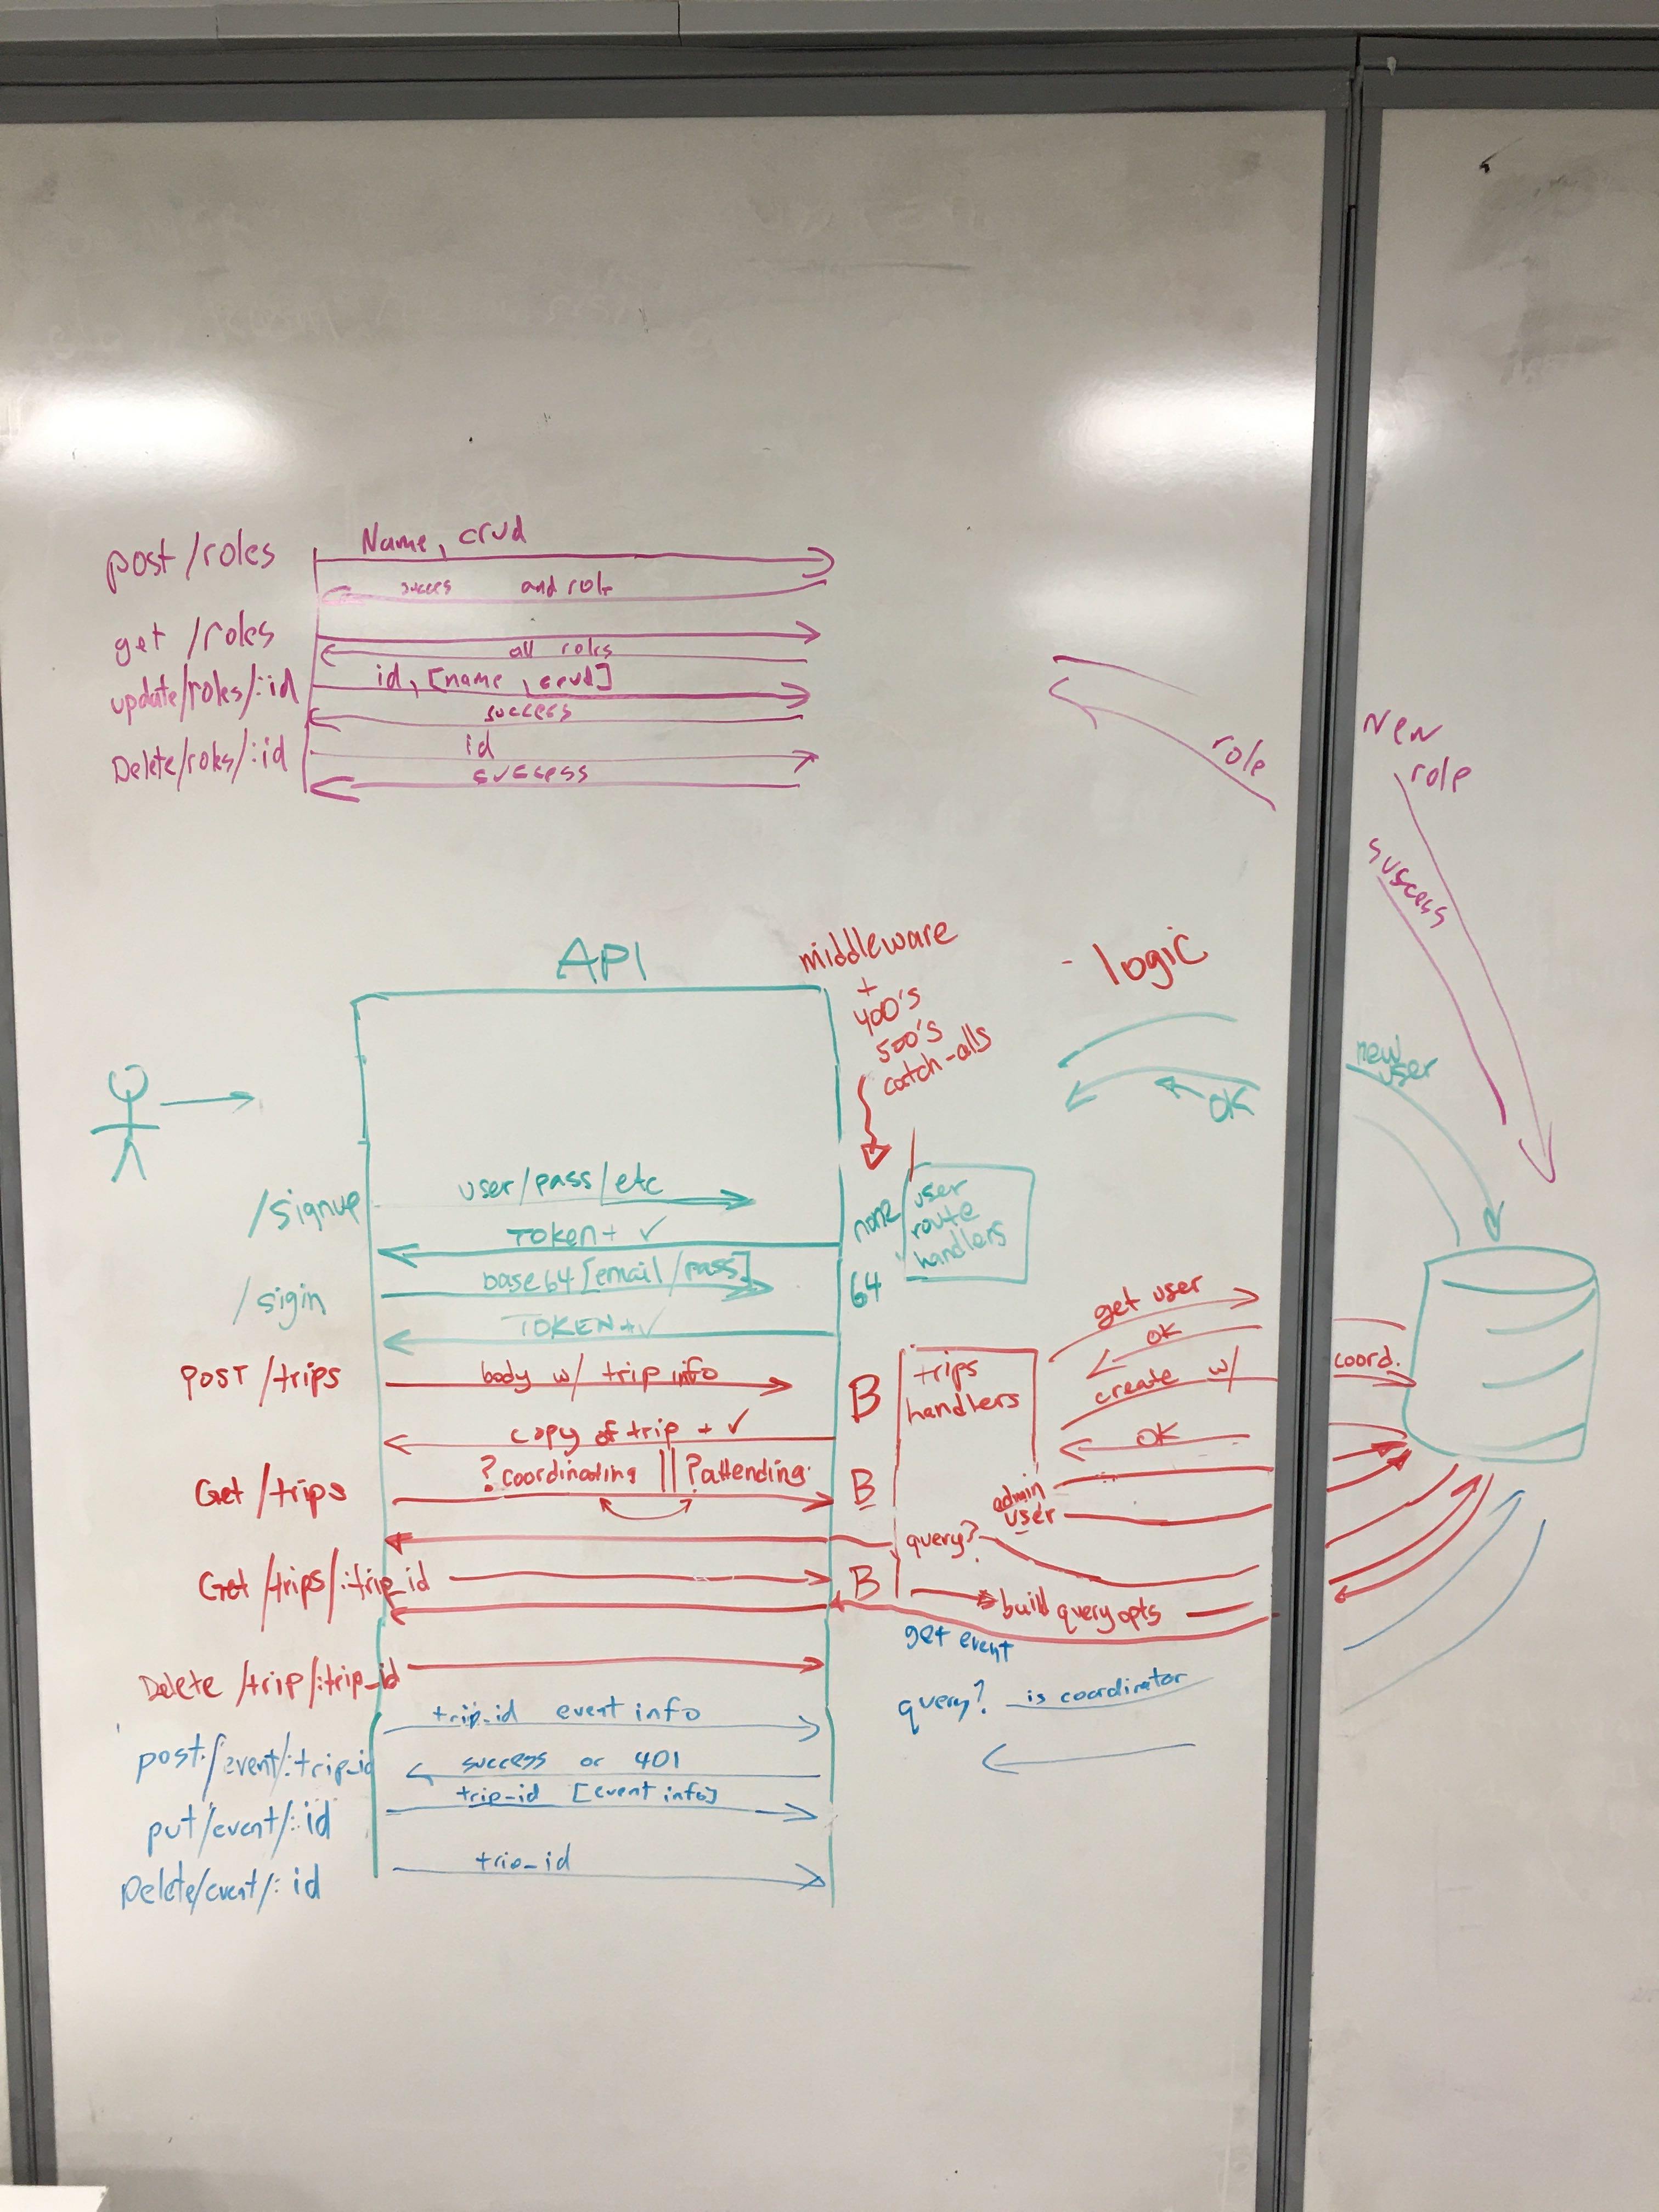 post/roles
Name, crud
succes and role
get /roles
all roles
update/roles/:id
id, [name, crud]
success
Delete/roles/:id
id
success
role
New
role
success
API
middleware
+
400's
500's
catch-alls
- logic
new
user
OK
/signup
user/pass/etc
Token + ✓
none
user
route
handlers
/sigin
base64[email/pass]
64
TOKEN+✓
get user
OK
POST /trips
body w/ trip info
B
trips
handlers
create w/
coord.
copy of trip + ✓
OK
Get /trips
?coordinating || ?attending
B
admin
user
query?
Get /trips/:trip_id
B
build query opts
get event
Delete /trip/:trip_id
query? is coordinator
post/event/:trip_id
trip_id event info
success or 401
put/event/:id
trip-id [event info]
Delete/event/:id
trip_id